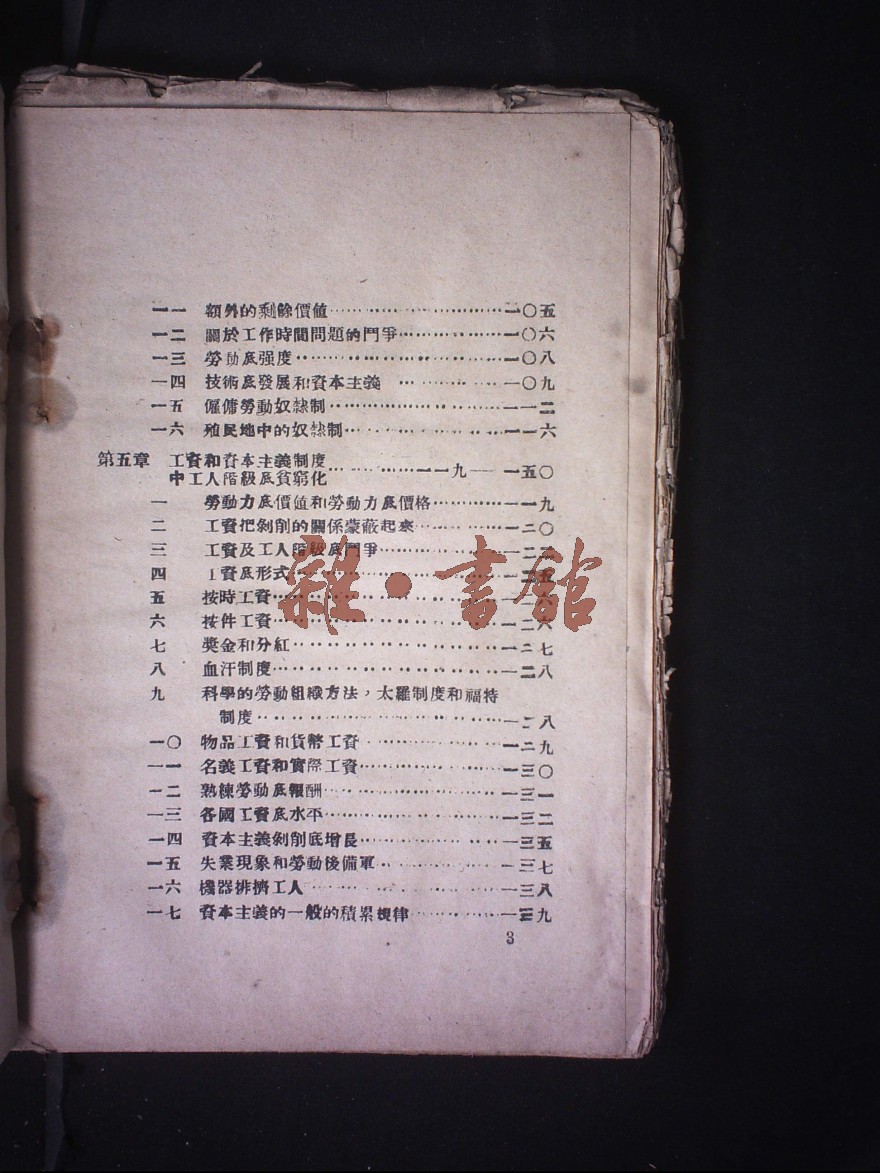 一一 額外的剩餘價值……一〇五
一二 關於工作時間問題的鬥爭……一〇六
一三 勞動底强度……一〇八
一四 技術底發展和資本主義……一〇九
一五 僱傭勞動奴隸制……一一二
一六 殖民地中的奴隸制……一一六
第五章 工資和資本主義制度
中工人階級底貧窮化……一一九——一五〇
一 勞動力底價値和勞動力底價格……一一九
二 工資把剝削的關係蒙蔽起來……一二〇
三 工資及工人階級底鬥爭……一二
四 工資底形式……一二五
五 按時工資……一二六
六 按件工資……一二六
雜·書館
七 獎金和分紅……一二七
八 血汗制度……一二八
九 科學的勞動組織方法，太羅制度和福特
制度……一二八
一〇 物品工資和貨幣工資……一二九
一一 名義工資和實際工資……一三〇
一二 熟練勞動底報酬……一三一
一三 各國工資底水平……一三二
一四 資本主義剝削底增長……一三五
一五 失業現象和勞動後備軍……一三七
一六 機器排擠工人……一三八
一七 資本主義的一般的積累規律……一三九
3